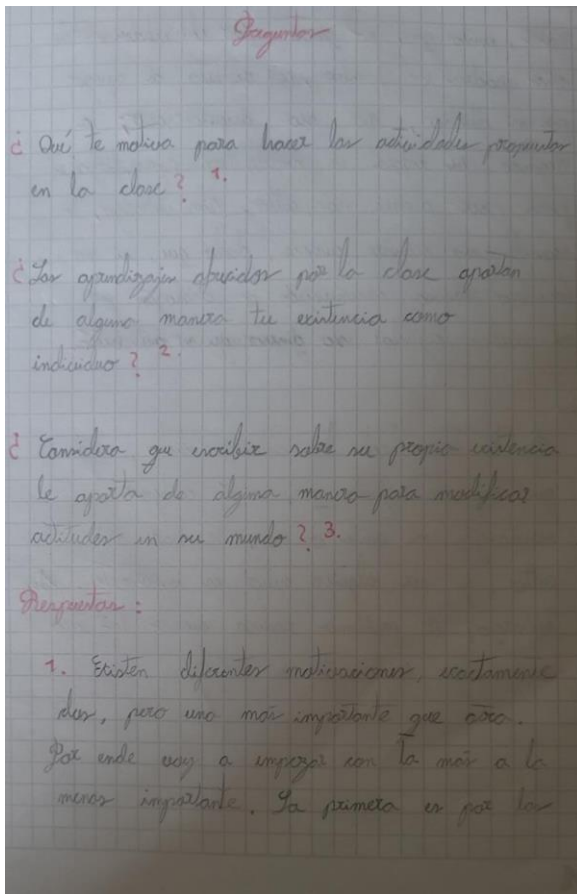 Preguntas
¿ Qué te motiva para hacer las actividades propuestas
en la clase ? 1.
¿ Los aprendizajes ofrecidos por la clase aportan
de alguna manera tu existencia como
individuo ? 2.
¿ Considera que escribir sobre su propia existencia
le aporta de alguna manera para modificar
actitudes en su mundo ? 3.
Respuestas :
1. Existen diferentes motivaciones, exactamente
dos, pero una más importante que otra.
Por ende voy a empezar con la más a la
menos importante. La primera es por los